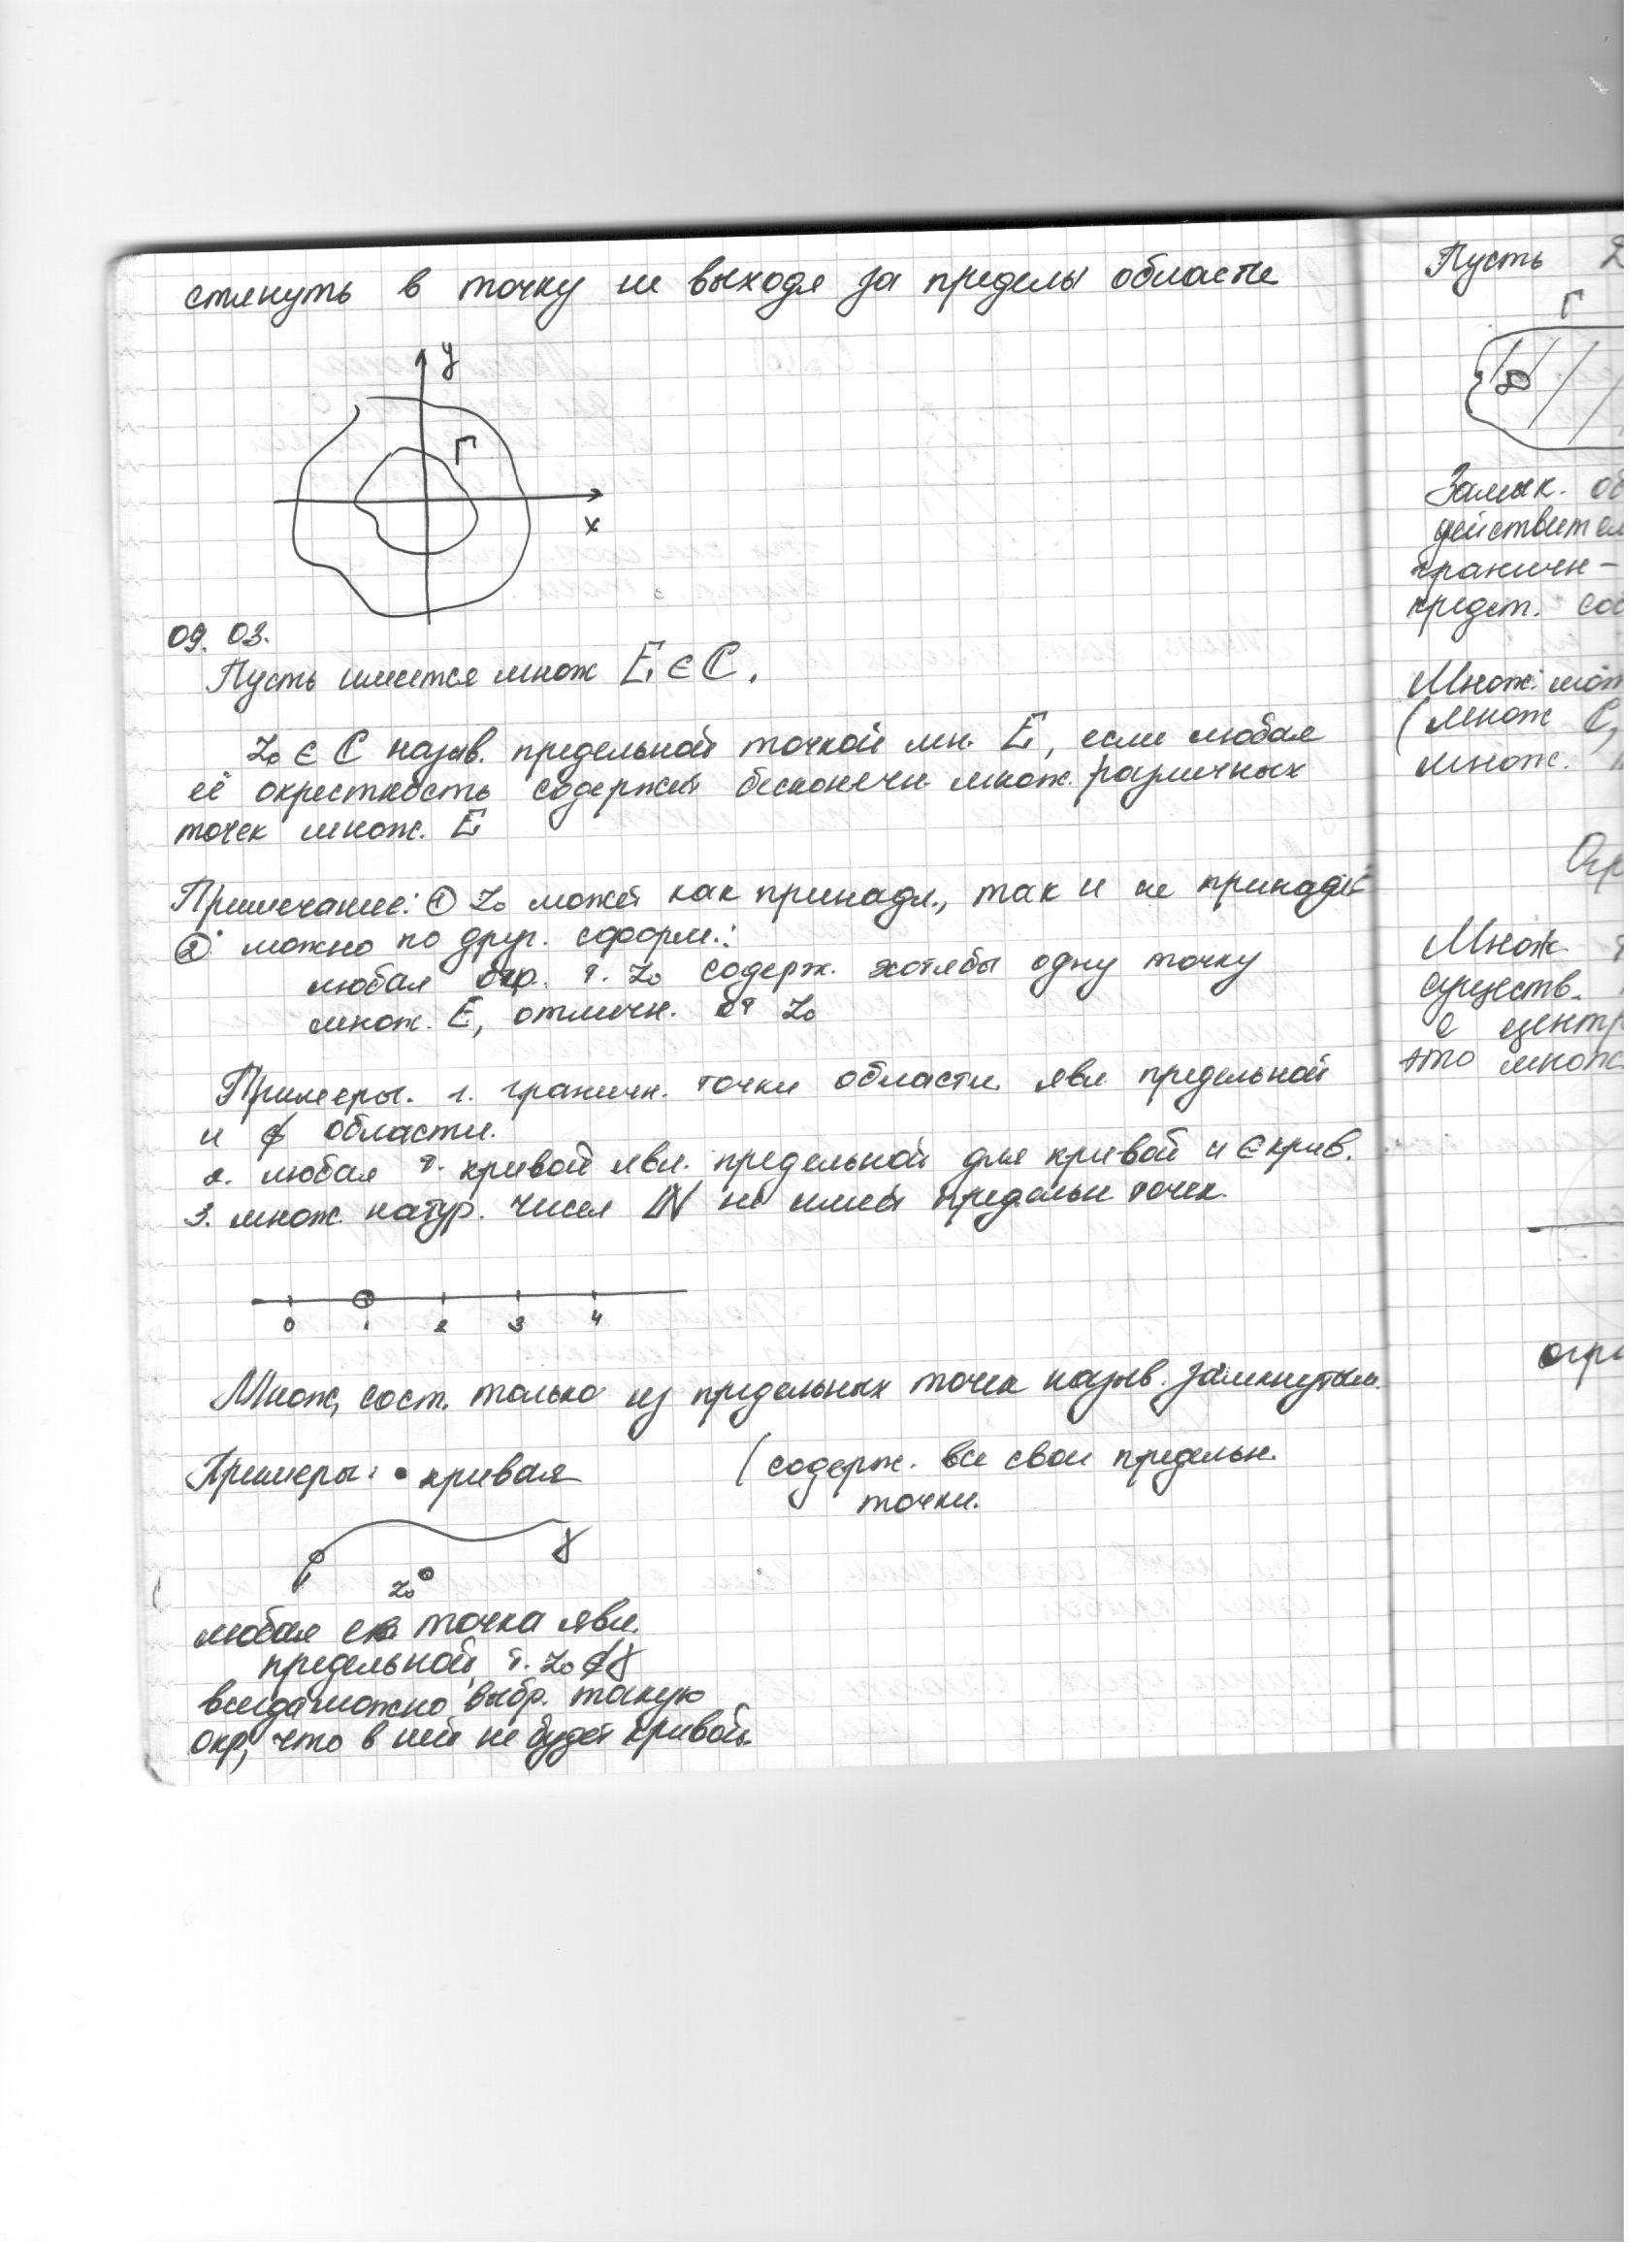 стянуть в точку не выходя за пределы области
y
Г
x
09. 03.
Пусть имеется множ E ∈ ℂ.
z₀ ∈ ℂ назыв. предельной точкой мн. E, если любая
её окрестность содержит бесконечн. множ. различных
точек множ. E
Примечание: ① z₀ может как принадл., так и не принадл
② можно по друг. сформ.:
любая окр. т. z₀ содерж. хотябы одну точку
множ. E, отличн. от z₀
Примеры. 1. граничн. точки области явл предельной
и ∉ области.
2. любая т. кривой явл. предельной для кривой и ∈ крив.
3. множ. натур. чисел ℕ не имеет предельн точек.
0 1 2 3 4
Множ, сост. только из предельных точек назыв. замкнутым.
Примеры: • кривая
(содерж. все свои предельн.
точки.
γ
z₀
любая её точка явл.
предельной, т. z₀ ∉ γ
всегда можно выбр. такую
окр, что в ней не будет кривой.
Пусть
Г
D
Замык.
граничн-
предст.
Множ.
(множ ℂ,
множ.
Множ
существ.
с
это множ